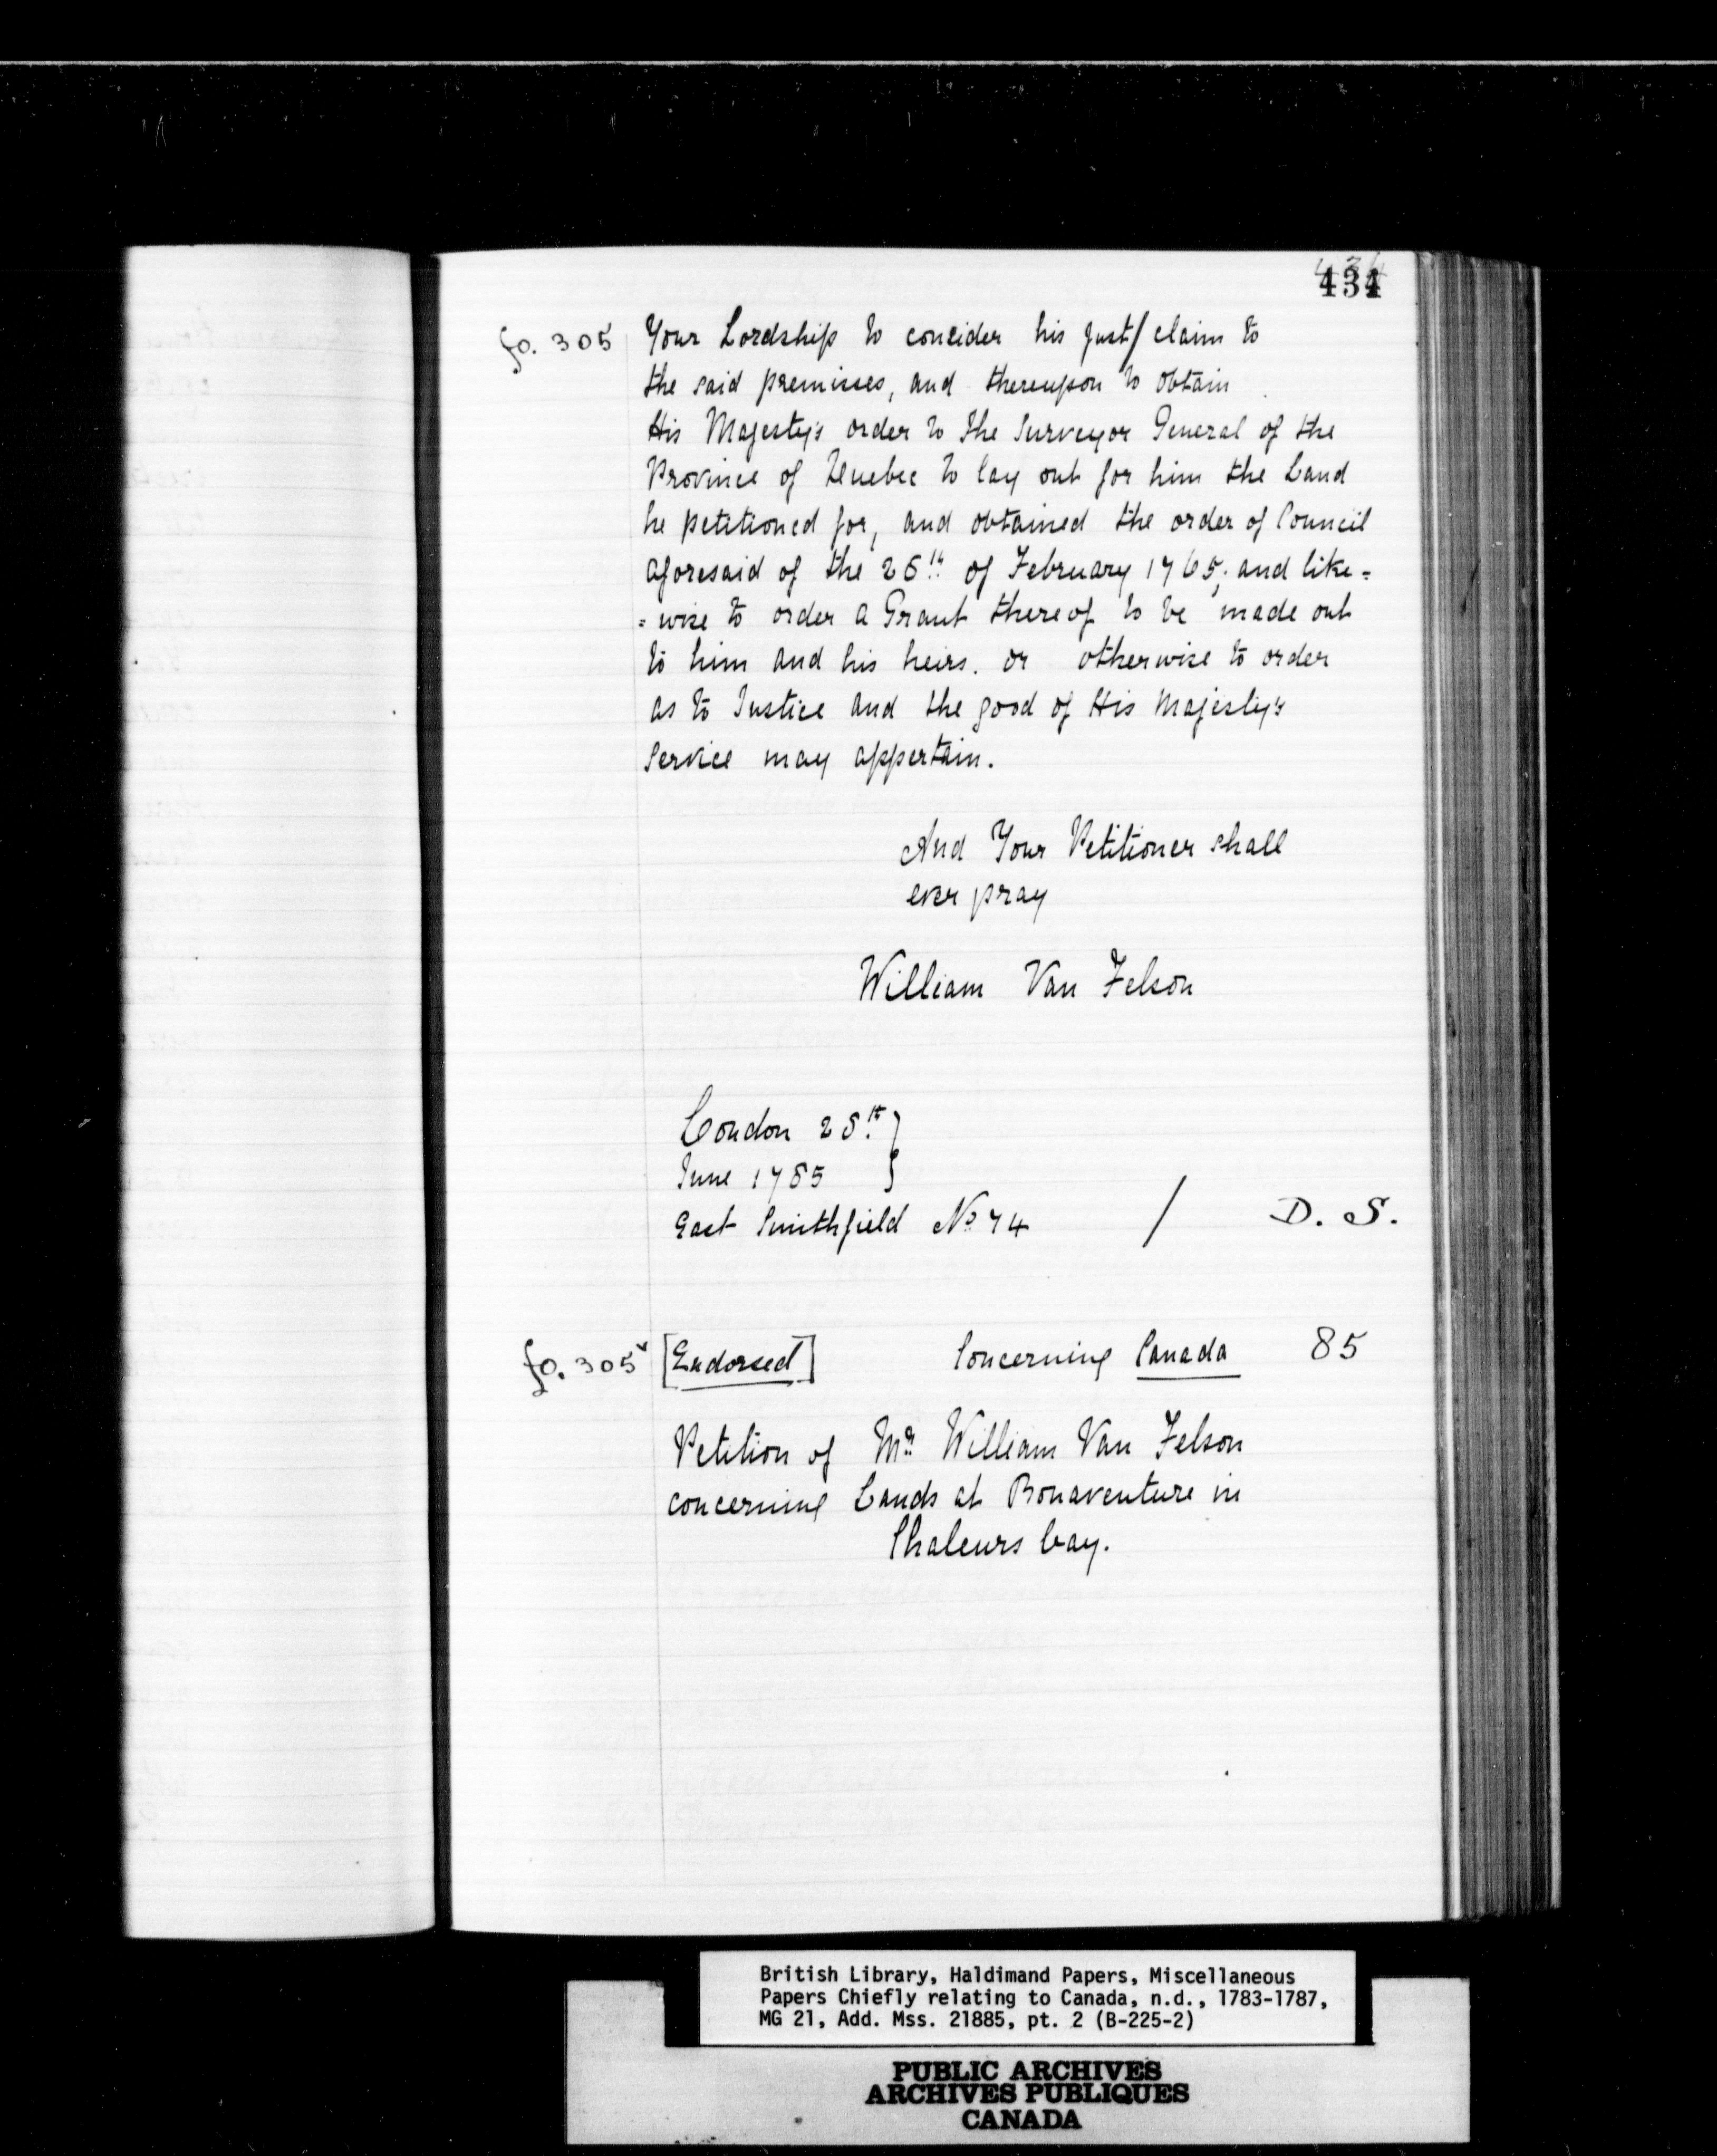 434
fo. 305 Your Lordship to consider his just/ claim to
the said premisses, and thereupon to obtain
His Majesty's order to the Surveyor General of the
Province of Quebec to lay out for him the Land
he petitioned for, and obtained the order of Council
aforesaid of the 26th of February 1765; and like=
=wise to order a Grant thereof to be made out
to him and his heirs. or otherwise to order
as to Justice and the good of His Majesty's
Service may appertain.
And Your Petitioner shall
ever pray
William Van Felson
London 25th }
June 1785 }
East Smithfield No 74 / D. S.
fo. 305v [Endorsed] Concerning Canada 85
Petition of Mr William Van Felson
concerning Lands at Bonaventure in
Chaleurs bay.
British Library, Haldimand Papers, Miscellaneous
Papers Chiefly relating to Canada, n.d., 1783-1787,
MG 21, Add. Mss. 21885, pt. 2 (B-225-2)
PUBLIC ARCHIVES
ARCHIVES PUBLIQUES
CANADA